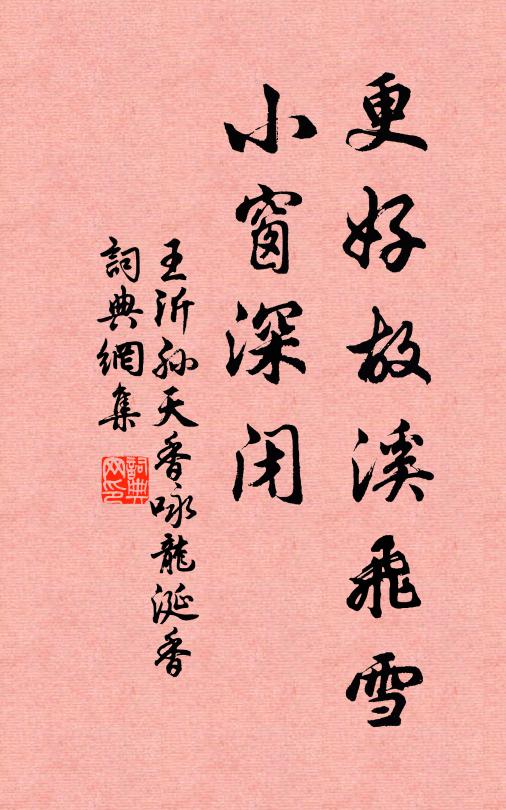 更好故溪飛雪
小窗深闭
王沂孫天香詠龍涎香
詞典網集
詞典
网印